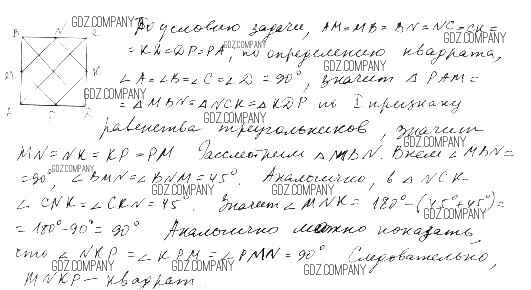 B N C
По условию задачи, AM=MB=BN=NC=CK=
=KD=DP=PA, по определению квадрата,
∠A=∠B=∠C=∠D=90°, значит △PAM=
=△MBN=△NCK=△KDP по I признаку
равенства треугольников, значит
MN=NK=KP=PM Рассмотрим △MBN. В нем ∠MBN=
=90°, ∠BMN=∠BNM=45°. Аналогично, в △NCK-
∠CNK=∠CKN=45°. Значит ∠MNK=180°-(45°+45°)=
=180°-90°=90° Аналогично можно показать
что ∠NKP=∠KPM=∠PMN=90° Следовательно,
MNKP – квадрат
GDZ.COMPANY